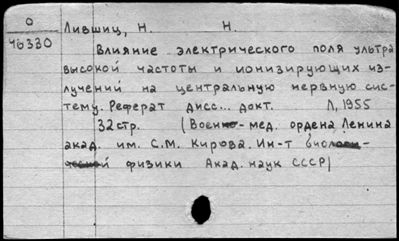 О
46330
Лившиц, Н. Н.
Влияние электрического поля ультра
высокой частоты и ионизирующих из-
лучений на центральную нервную сис-
тему. Реферат дисс... докт. Л, 1955
32 стр. (Военно-мед. ордена Ленина
акад. им. С.М. Кирова. Ин-т биологи-
ческой физики Акад. наук СССР)